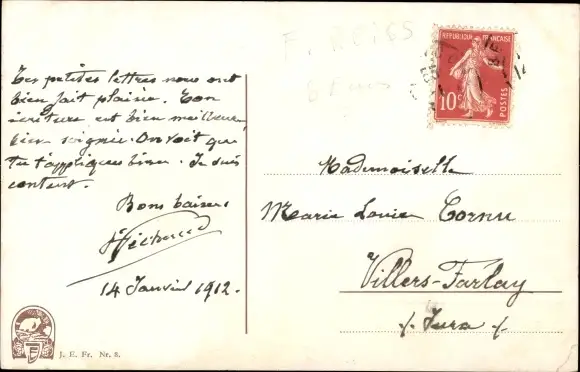 Tes petites lettres nous ont
bien fait plaisir. Ton
écriture est bien meilleure,
bien soignée. On voit que
tu t'appliques bien. Je suis
content.
Bons baisers
14 Janvier 1912.
J. E. Fr. Nr. 8.
F. REIGS
REPUBLIQUE FRANÇAISE
10c
POSTES
Mademoiselle
Marie Louise Cornu
Villers-Farlay
Jura